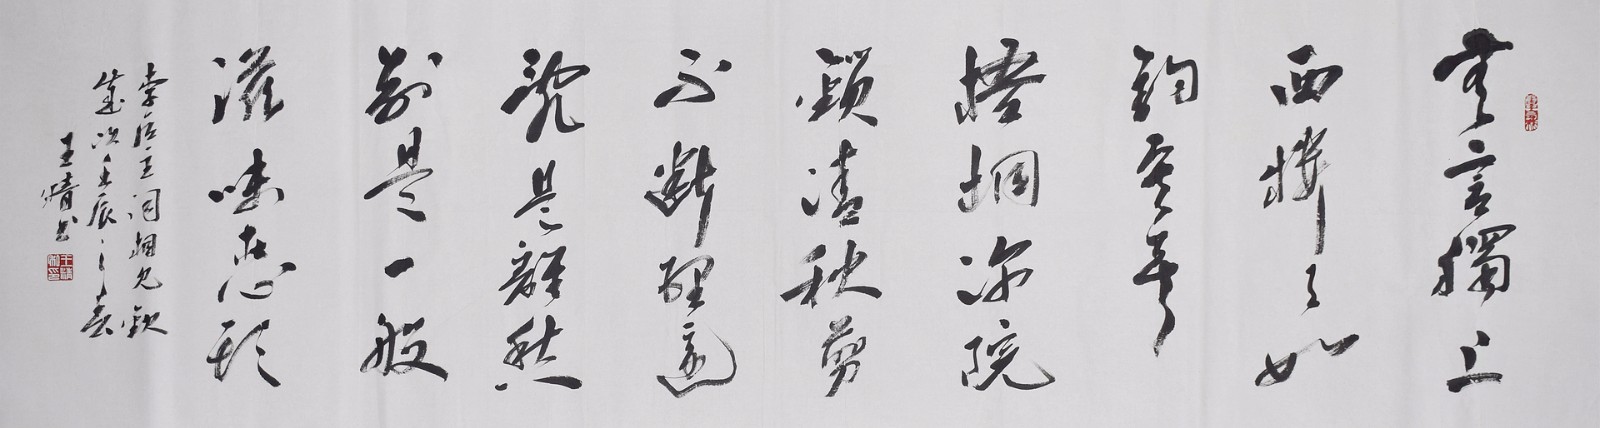 無言獨上
西樓月如
鈎寂寞
梧桐深院
鎖清秋剪
不斷理還
亂是離愁
別是一般
滋味在心頭
李后主詞相見歡
歲次壬辰之春
王晴書